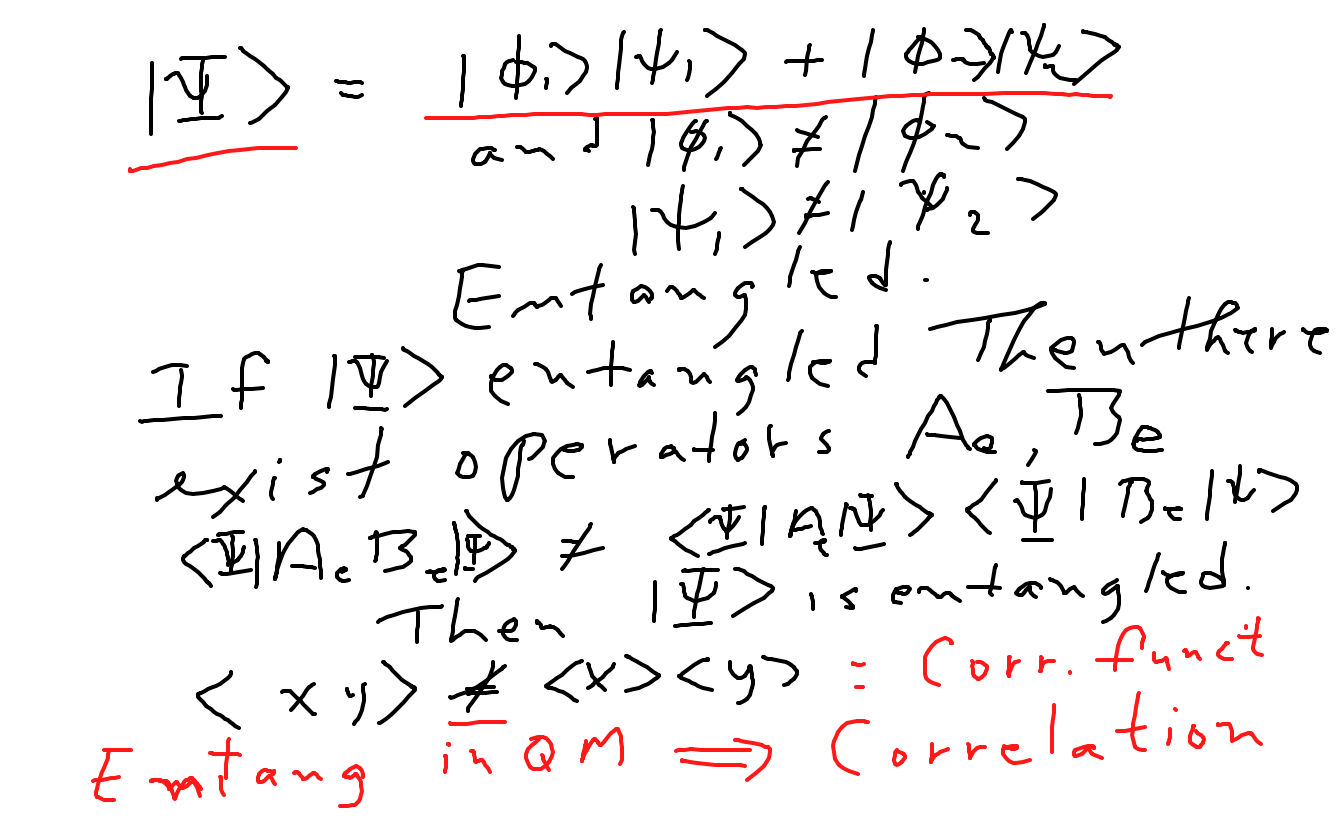 |Ψ> = |ϕ₁>|ψ₁> + |ϕ₂>|ψ₂>
and |ϕ₁> ≠ |ϕ₂>
|ψ₁> ≠ |ψ₂>
Entangled.
If |Ψ> entangled Then there
exist operators Aₑ, Bₑ
<Ψ|AₑBₑ|Ψ> ≠ <Ψ|Aₑ|Ψ> <Ψ|Bₑ|Ψ>
Then |Ψ> is entangled.
<xy> ≠ <x><y> = Corr. funct
Emtang in QM ⟹ Correlation